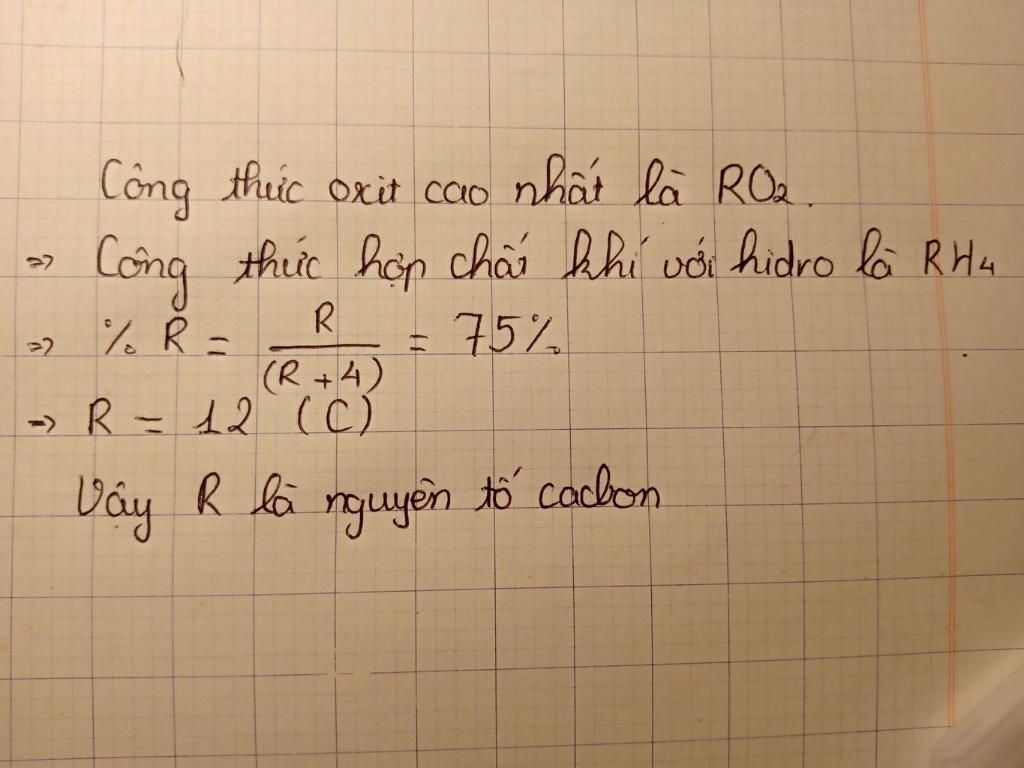 Công thức oxit cao nhất là RO₂.
=> Công thức hợp chất khí với hidro là RH₄
=> % R = R / (R + 4) = 75%
=> R = 12 (C)
Vậy R là nguyên tố cacbon